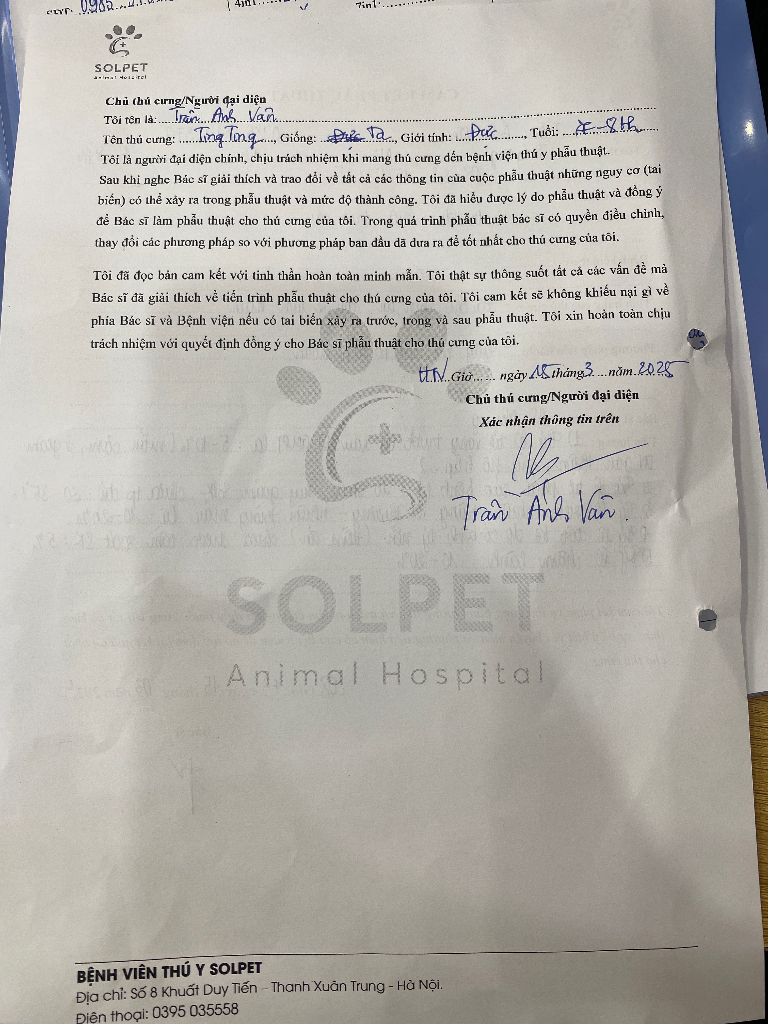 SOLPET
Animal Hospital
Chủ thú cưng/Người đại diện
Tôi tên là: Trần Anh Vân
Tên thú cưng: Ting Ting, Giống: Ta, Giới tính: Đực, Tuổi: 7-8th
Tôi là người đại diện chính, chịu trách nhiệm khi mang thú cưng đến bệnh viện thú y phẫu thuật.
Sau khi nghe Bác sĩ giải thích và trao đổi về tất cả các thông tin của cuộc phẫu thuật những nguy cơ (tai
biến) có thể xảy ra trong phẫu thuật và mức độ thành công. Tôi đã hiểu được lý do phẫu thuật và đồng ý
để Bác sĩ làm phẫu thuật cho thú cưng của tôi. Trong quá trình phẫu thuật bác sĩ có quyền điều chỉnh,
thay đổi các phương pháp so với phương pháp ban đầu đã đưa ra để tốt nhất cho thú cưng của tôi.
Tôi đã đọc bản cam kết với tinh thần hoàn toàn minh mẫn. Tôi thật sự thông suốt tất cả các vấn đề mà
Bác sĩ đã giải thích về tiến trình phẫu thuật cho thú cưng của tôi. Tôi cam kết sẽ không khiếu nại gì về
phía Bác sĩ và Bệnh viện nếu có tai biến xảy ra trước, trong và sau phẫu thuật. Tôi xin hoàn toàn chịu
trách nhiệm với quyết định đồng ý cho Bác sĩ phẫu thuật cho thú cưng của tôi.
HN Giờ...... ngày 15 tháng 3 năm 2025
Chủ thú cưng/Người đại diện
Xác nhận thông tin trên
Trần Anh Vân
SOLPET
Animal Hospital
BỆNH VIÊN THÚ Y SOLPET
Địa chỉ: Số 8 Khuất Duy Tiến - Thanh Xuân Trung - Hà Nội.
Điện thoại: 0395 035558